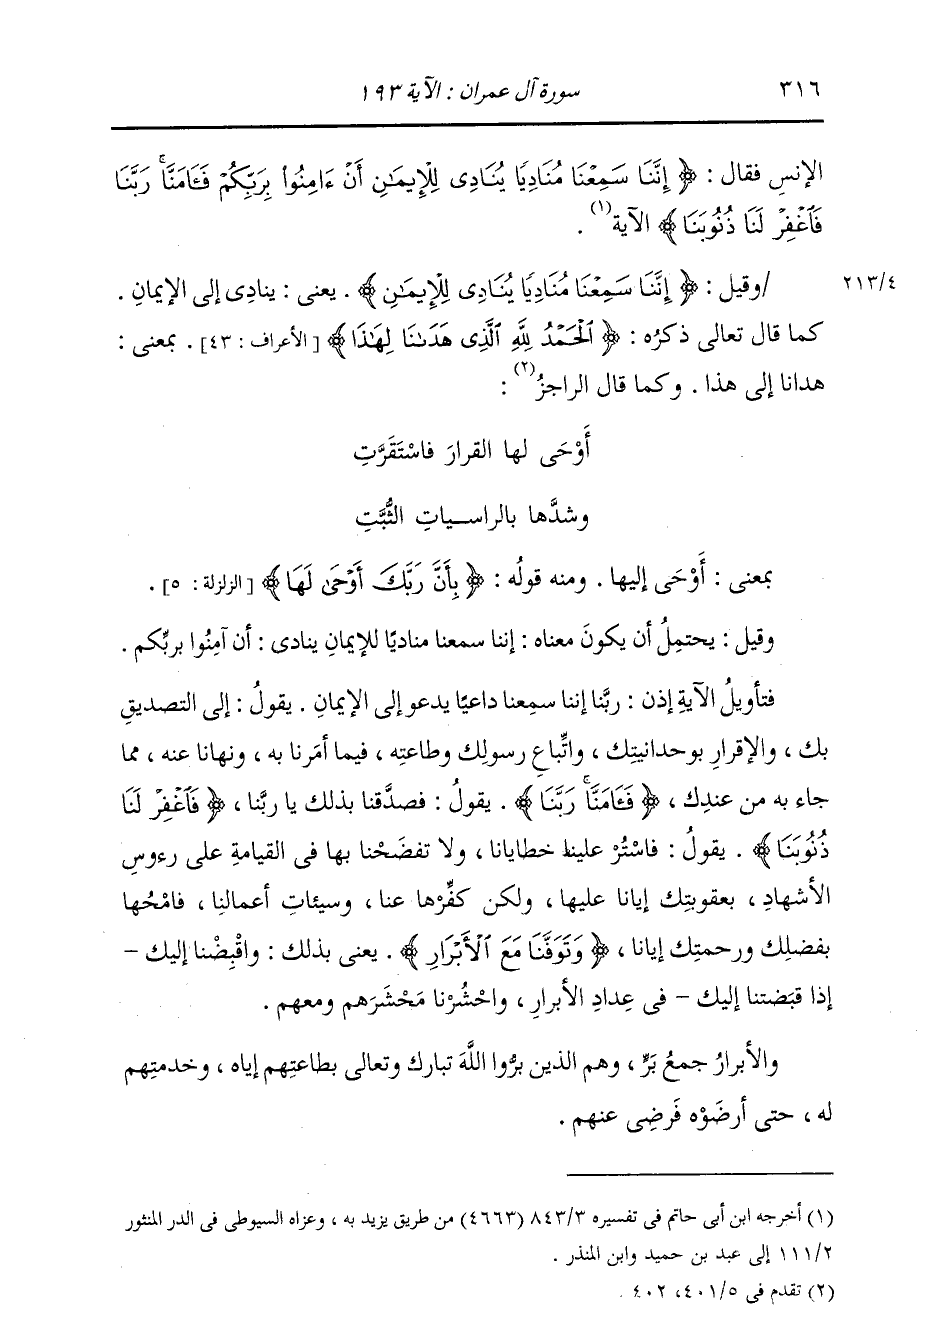 ٣١٦ سورة آل عمران : الآية ١٩٣
الإنسِ فقال : ﴿ إِنَّنَا سَمِعْنَا مُنَادِيًا يُنَادِى لِلْإِيمَٰنِ أَنْ ءَامِنُوا۟ بِرَبِّكُمْ فَـَٔامَنَّا ۚ رَبَّنَا
فَٱغْفِرْ لَنَا ذُنُوبَنَا ﴾ الآية(١) .
٢١٣/٤ /وقيل : ﴿ إِنَّنَا سَمِعْنَا مُنَادِيًا يُنَادِى لِلْإِيمَٰنِ ﴾ . يعنى : ينادِى إلى الإيمانِ .
كما قال تعالى ذكرُه : ﴿ ٱلْحَمْدُ لِلَّهِ ٱلَّذِى هَدَىٰنَا لِهَٰذَا ﴾ [ الأعراف : ٤٣] . بمعنى :
هدانا إلى هذا . وكما قال الراجزُ(٢) :
أَوْحَى لها القرارَ فاسْتَقَرَّتِ
وشدَّها بالراسـياتِ الثُّبَّتِ
بمعنى : أَوْحَى إليها . ومنه قولُه : ﴿ بِأَنَّ رَبَّكَ أَوْحَىٰ لَهَا ﴾ [ الزلزلة : ٥] .
وقيل : يحتمِلُ أن يكونَ معناه : إننا سمعنا مناديًا للإيمانِ ينادى : أن آمِنُوا بربِّكم .
فتأويلُ الآيةِ إذن : ربَّنا إننا سمِعنا داعيًا يدعو إلى الإيمانِ . يقولُ : إلى التصديقِ
بك ، والإقرارِ بوحدانيتِك ، واتِّباعِ رسولِك وطاعتِه ، فيما أمَرنا به ، ونهانا عنه ، مما
جاء به من عندِك ، ﴿ فَـَٔامَنَّا ۚ رَبَّنَا ﴾ . يقولُ : فصدَّقنا بذلك يا ربَّنا ، ﴿ فَٱغْفِرْ لَنَا
ذُنُوبَنَا ﴾ . يقولُ : فاسْتُرْ علينا خطايانا ، ولا تفضَحْنا بها فى القيامةِ على رءوسِ
الأشهادِ ، بعقوبتِك إيانا عليها ، ولكن كفِّرْها عنا ، وسيئاتِ أعمالنِا ، فامْحُها
بفضلِك ورحمتِك إيانا ، ﴿ وَتَوَفَّنَا مَعَ ٱلْأَبْرَارِ ﴾ . يعنى بذلك : واقْبِضْنا إليك –
إذا قبَضتنا إليك – فى عِدادِ الأبرارِ ، واحْشُرْنا مَحْشَرَهم ومعهم .
والأبرارُ جمعُ بَرٍّ ، وهم الذين برُّوا اللَّهَ تبارك وتعالى بطاعتِهم إياه ، وخدمتِهم
له ، حتى أرضَوْه فَرضِى عنهم .
(١) أخرجه ابن أبى حاتم فى تفسيره ٨٤٣/٣ (٤٦٦٣) من طريق يزيد به ، وعزاه السيوطى فى الدر المنثور
١١١/٢ إلى عبد بن حميد وابن المنذر .
(٢) تقدم فى ٤٠١/٥، ٤٠٢ .